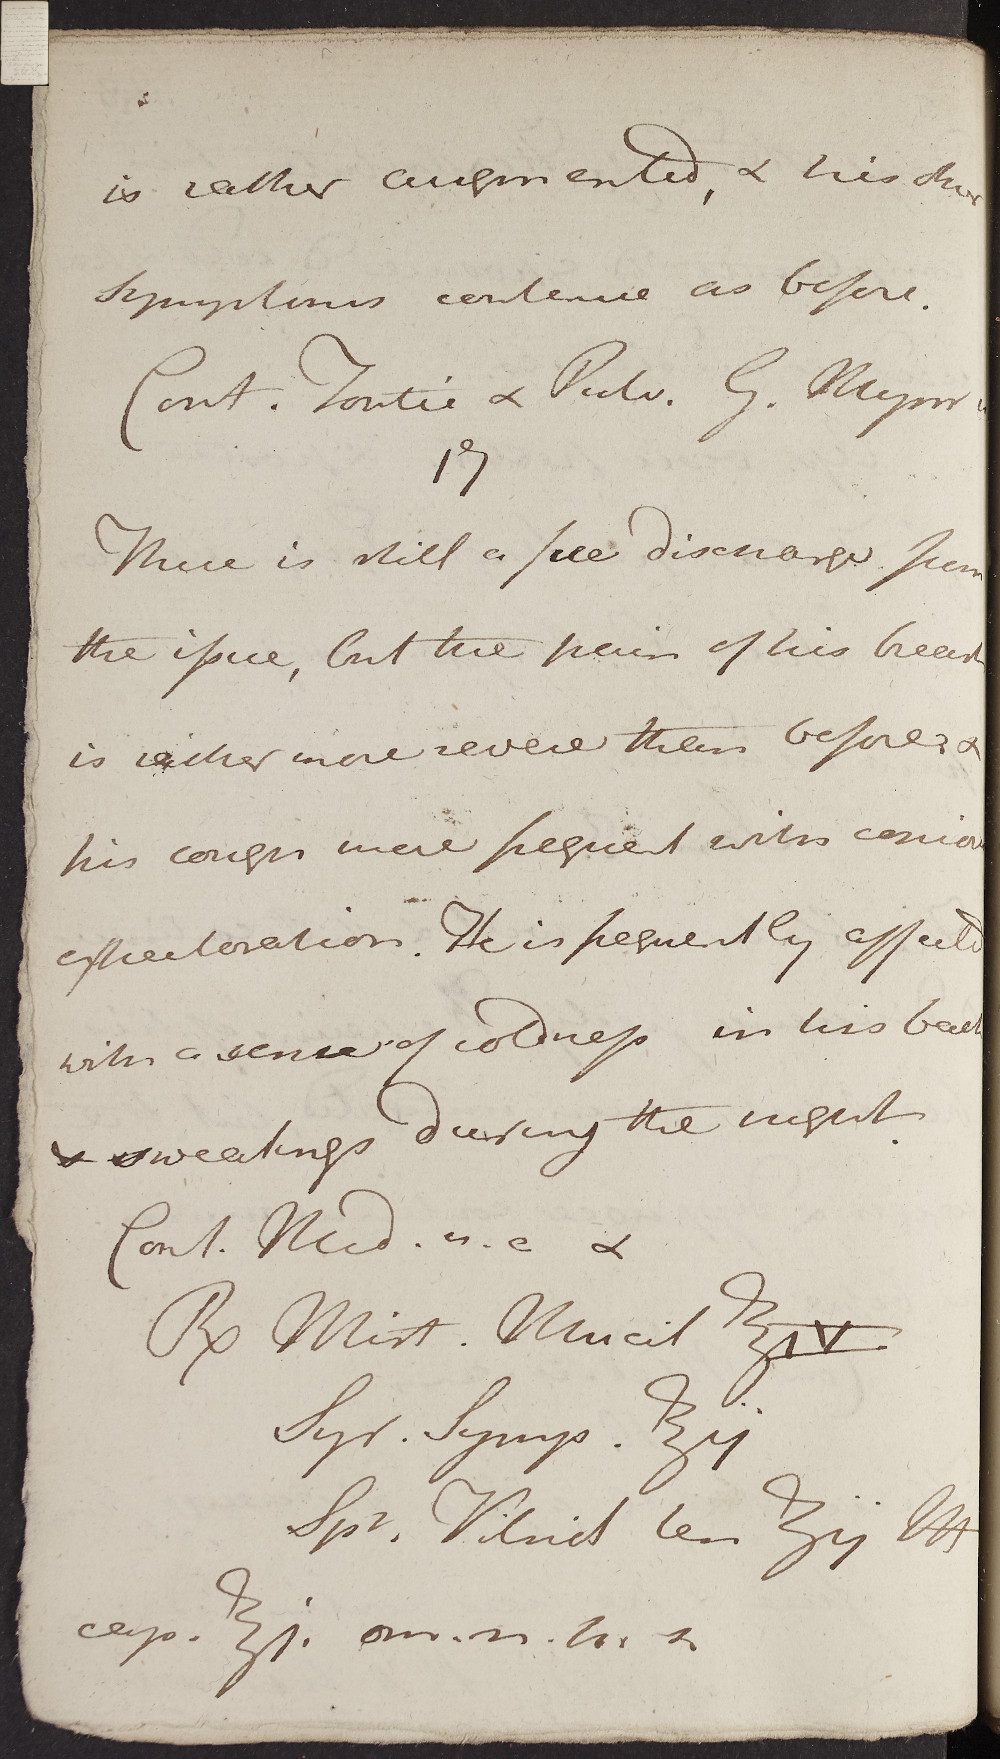 is rather augmented, & his other
symptoms continue as before.
Cont. & Pulv. G. Myrrh
17
There is still a free discharge from
the issue, but the pain of his breast
is rather more severe than before, &
his cough more frequent with
expectoration. He is frequently affected
with a sense of coldness in his back
& sweatings during the night.
Cont. Med. u. a &
Rx Mist. Mucil ℥iv
Syr. Symp. ℥ij
Spr. Vitriol ʒij Ut
cap. ℥j. om. n. h. s.